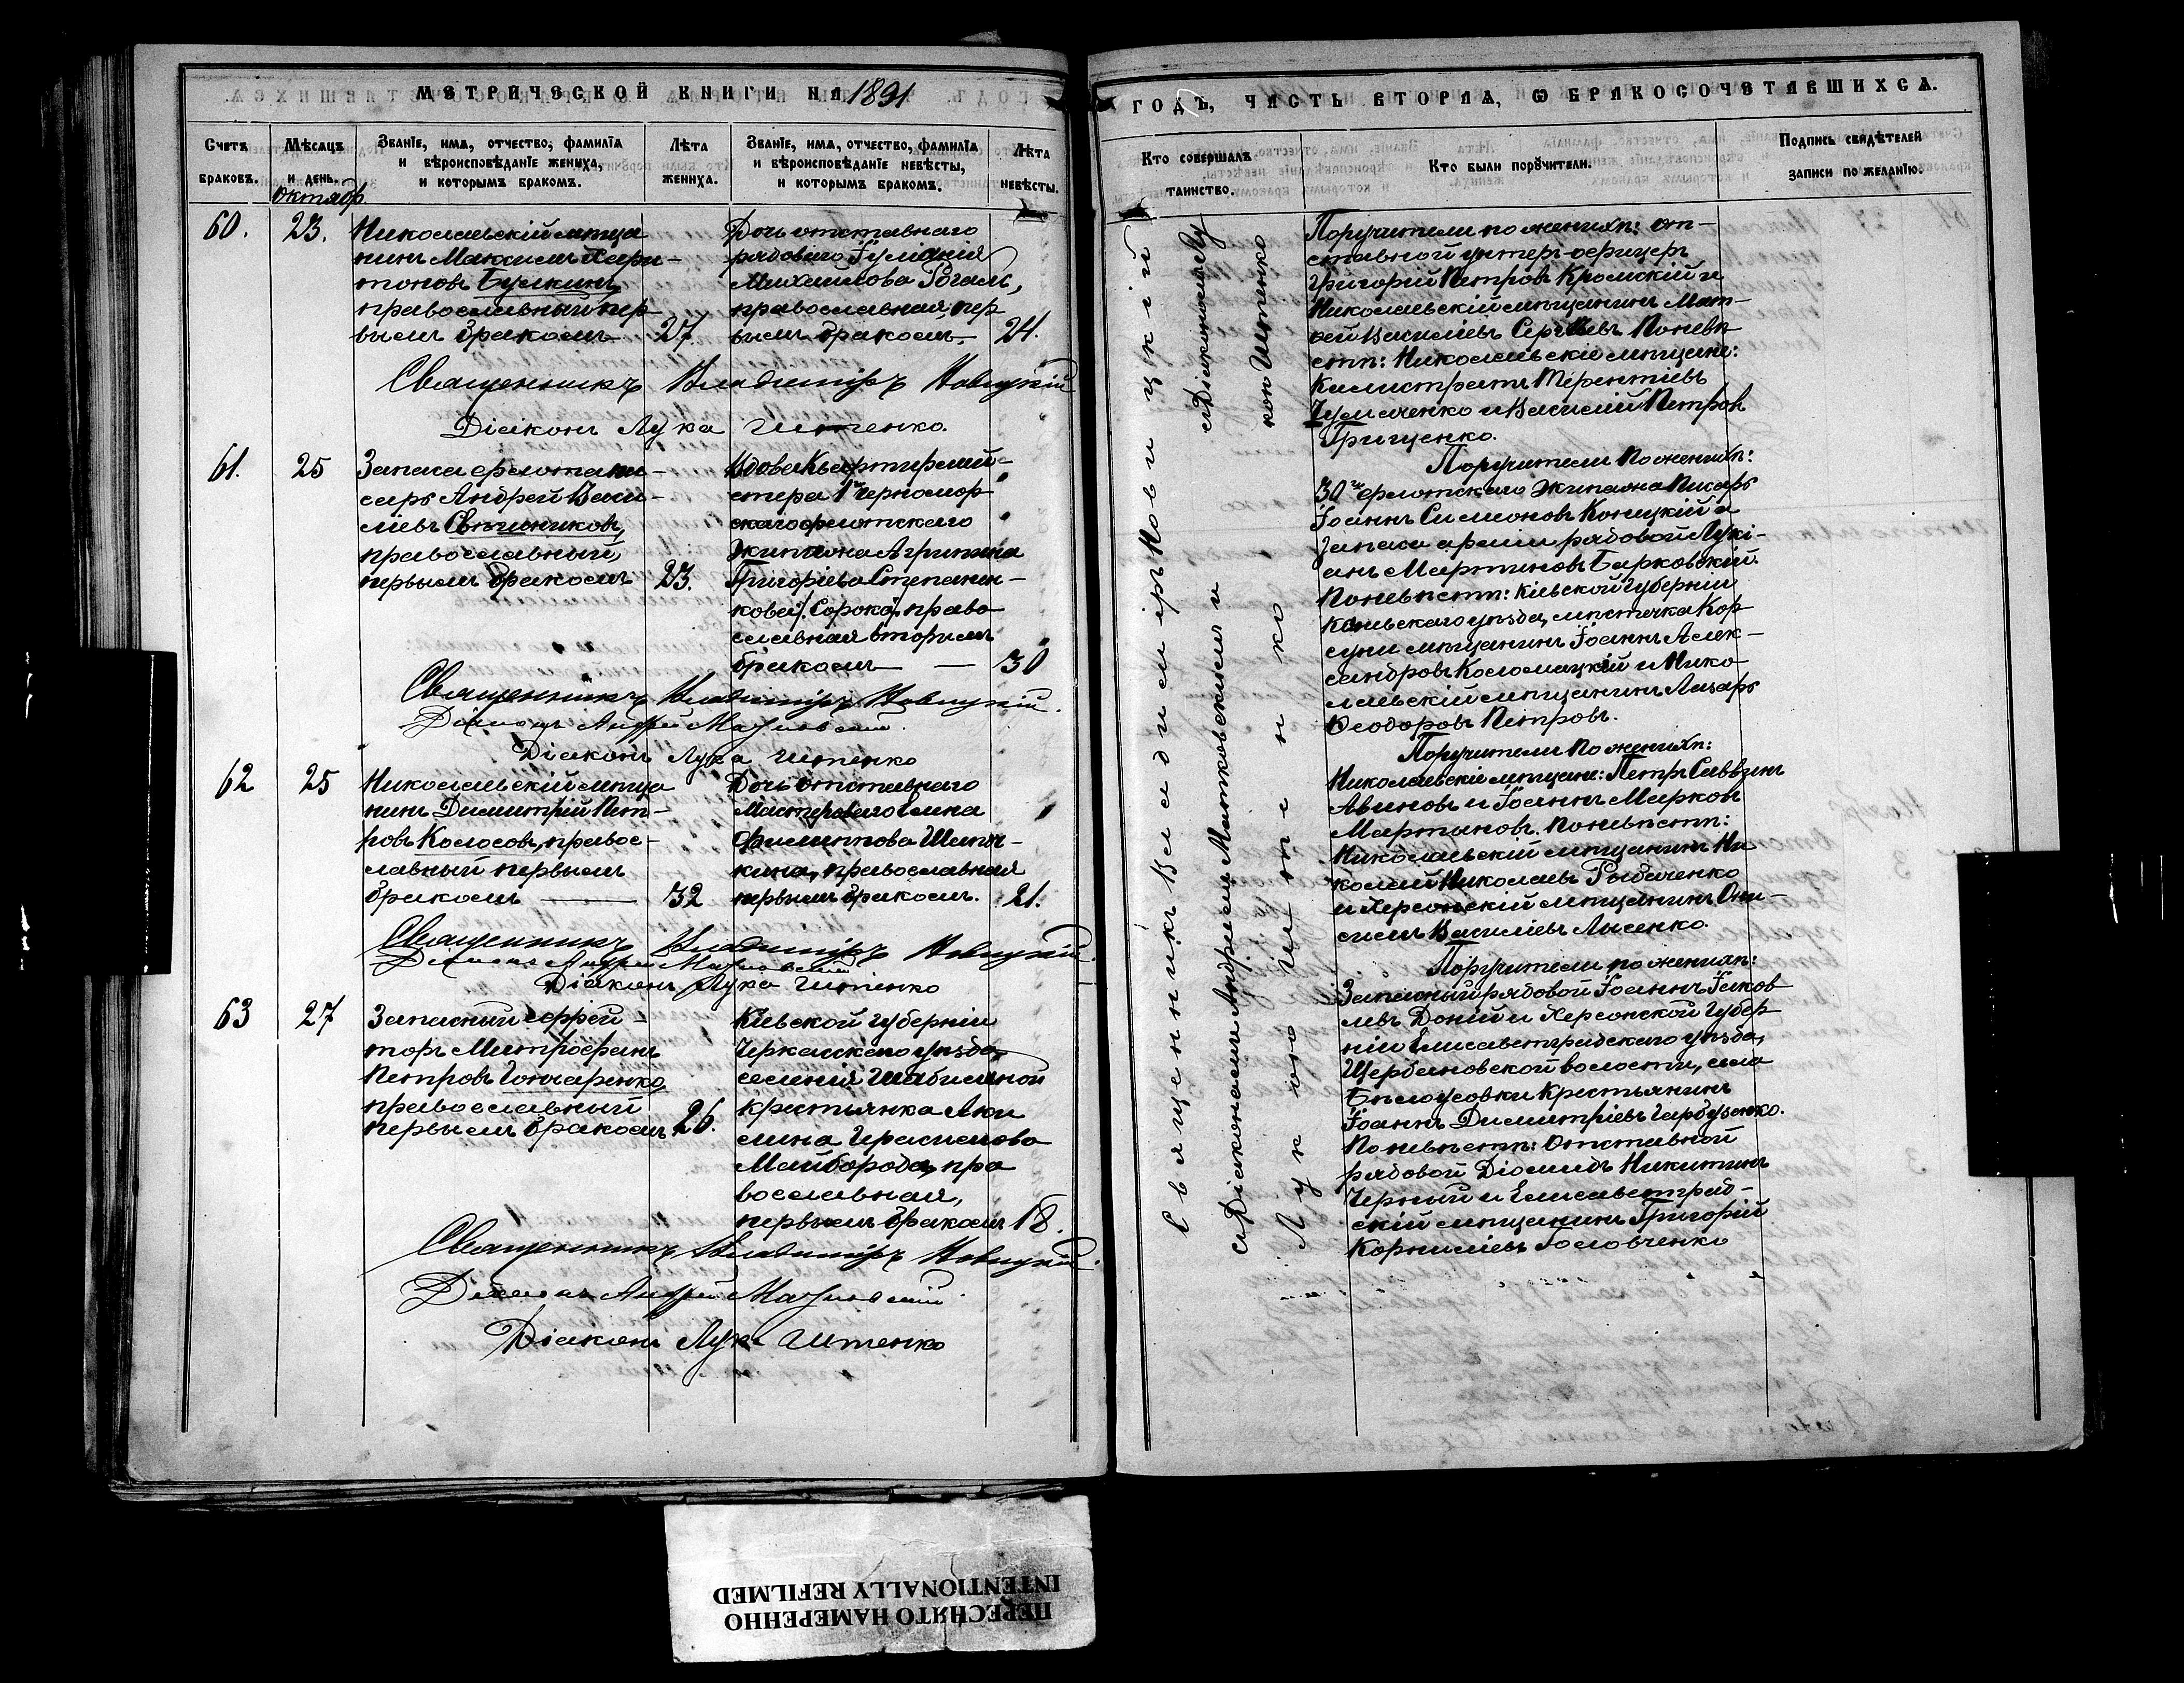 МЕТРИЧЕСКОЙ КНИГИ НА 1891
Счетъ браковъ.
Мѣсяцъ и день.
Званіе, имя, отчество, фамилія и вѣроисповѣданіе жениха, и которымъ бракомъ.
Лѣта жениха.
Званіе, имя, отчество, фамилія и вѣроисповѣданіе невѣсты, и которымъ бракомъ.
Лѣта невѣсты.
Октябр.
60.
23.
Николаевскій мѣща
нинъ Максимъ Хари-
тоновъ Булкинъ,
православный пер
вымъ бракомъ
27
Дочь отставнаго
рядоваго Іуліанія
Михаилова Рогаль,
православная, пер
вымъ бракомъ.
21.
Священникъ Владиміръ Новицкій
Діаконъ Лука Иштенко.
61.
25
Запаса флота пи-
сарь Андрей Васи-
ліевъ Свѣшниковъ,
православный,
первымъ бракомъ
23.
Вдова Квартирмей-
стера 1го Черномор
скаго флотскаго
экипажа Агрипина
Григоріева Степанен-
кова /: Сорока:/ право
славная вторымъ
бракомъ —
30
Священникъ Владиміръ Новицкій.
Діаконъ Андрей
Діаконъ Лука Иштенко
62
25
Николаевскій мѣща
нинъ Димитрій Пет-
ровъ Колосовъ, правос-
лавный первымъ
бракомъ —
32
Дочь отставнаго
Мастероваго Елена
Филиппова
кина, православная
первымъ бракомъ.
21.
Священникъ Владиміръ Новицкій.
Діаконъ Андрей
Діаконъ Лука Иштенко
63
27
Запасный ефрей-
торъ Митрофанъ
Петровъ Гончаренко,
православный
первымъ бракомъ
26.
Кіевской губерніи
Черкасскаго уѣзда,
селенія
крестьянка Аки
лина Герасимова
Майборода, пра
вославная,
первымъ бракомъ
18.
Священникъ Владиміръ Новицкій.
Діаконъ Андрей
Діаконъ Лука Иштенко
ГОДЪ, ЧАСТЬ ВТОРАЯ, Ѡ БРАКОСОЧЕТАВШИХСЯ.
Кто совершалъ таинство.
Кто были порꙋчители.
Подпись свидѣтелей записи по желанію.
Священникъ Владиміръ Новицкій
съ Діаконами Андреемъ
съ Діакономъ Лу
Лукою Иштенко
кою Иштенко
Поручители по женихѣ: от-
ставной унтеръ-офицеръ
Григорій Петровъ Кромскій и
Николаевскій мѣщанинъ Мат-
вей Василіевъ Сергѣевъ По невѣ
стѣ: Николаевскіе мѣщане:
Калистратъ Терентіевъ
Чумаченко и Василій Петровъ
Грищенко.
Поручители по женихѣ:
30го флотскаго экипажа Писарь
Іоаннъ Симоновъ Коницкій и
запаса арміи рядовой Лукі-
анъ Мартиновъ Барковскій.
По невѣстѣ: Кіевской губерніи
Каневскаго уѣзда, мѣстечка Кор
суни мѣщанинъ Іоаннъ Алек-
сандровъ Коломацкій и Нико
лаевскій мѣщанинъ Лазарь
Ѳеодоровъ Петровъ.
Поручители по женихѣ:
Николаевскіе мѣщане: Петръ Саввинъ
Авиновъ и Іоаннъ Марковъ
Мартыновъ. По невѣстѣ:
Николаевскій мѣщанинъ Ни
колай Николаевъ Рыбаченко
и Херсонскій мѣщанинъ Они-
симъ Василіевъ Лысенко.
Поручители по женихѣ:
Запасный рядовой Іоаннъ Іаков
левъ Доній и Херсонской губер
ніи Елисаветградскаго уѣзда,
Щербановской волости, села
Бѣлоусовки Крестьянинъ
Іоаннъ Димитріевъ Гарбузенко.
По невѣстѣ: Отставной
рядовой Діомидъ Никитинъ
Черный и Елисаветград-
скій мѣщанинъ Григорій
Корниліевъ Головченко
ПЕРЕСНЯТО НАМЕРЕННО
INTENTIONALLY REFILMED